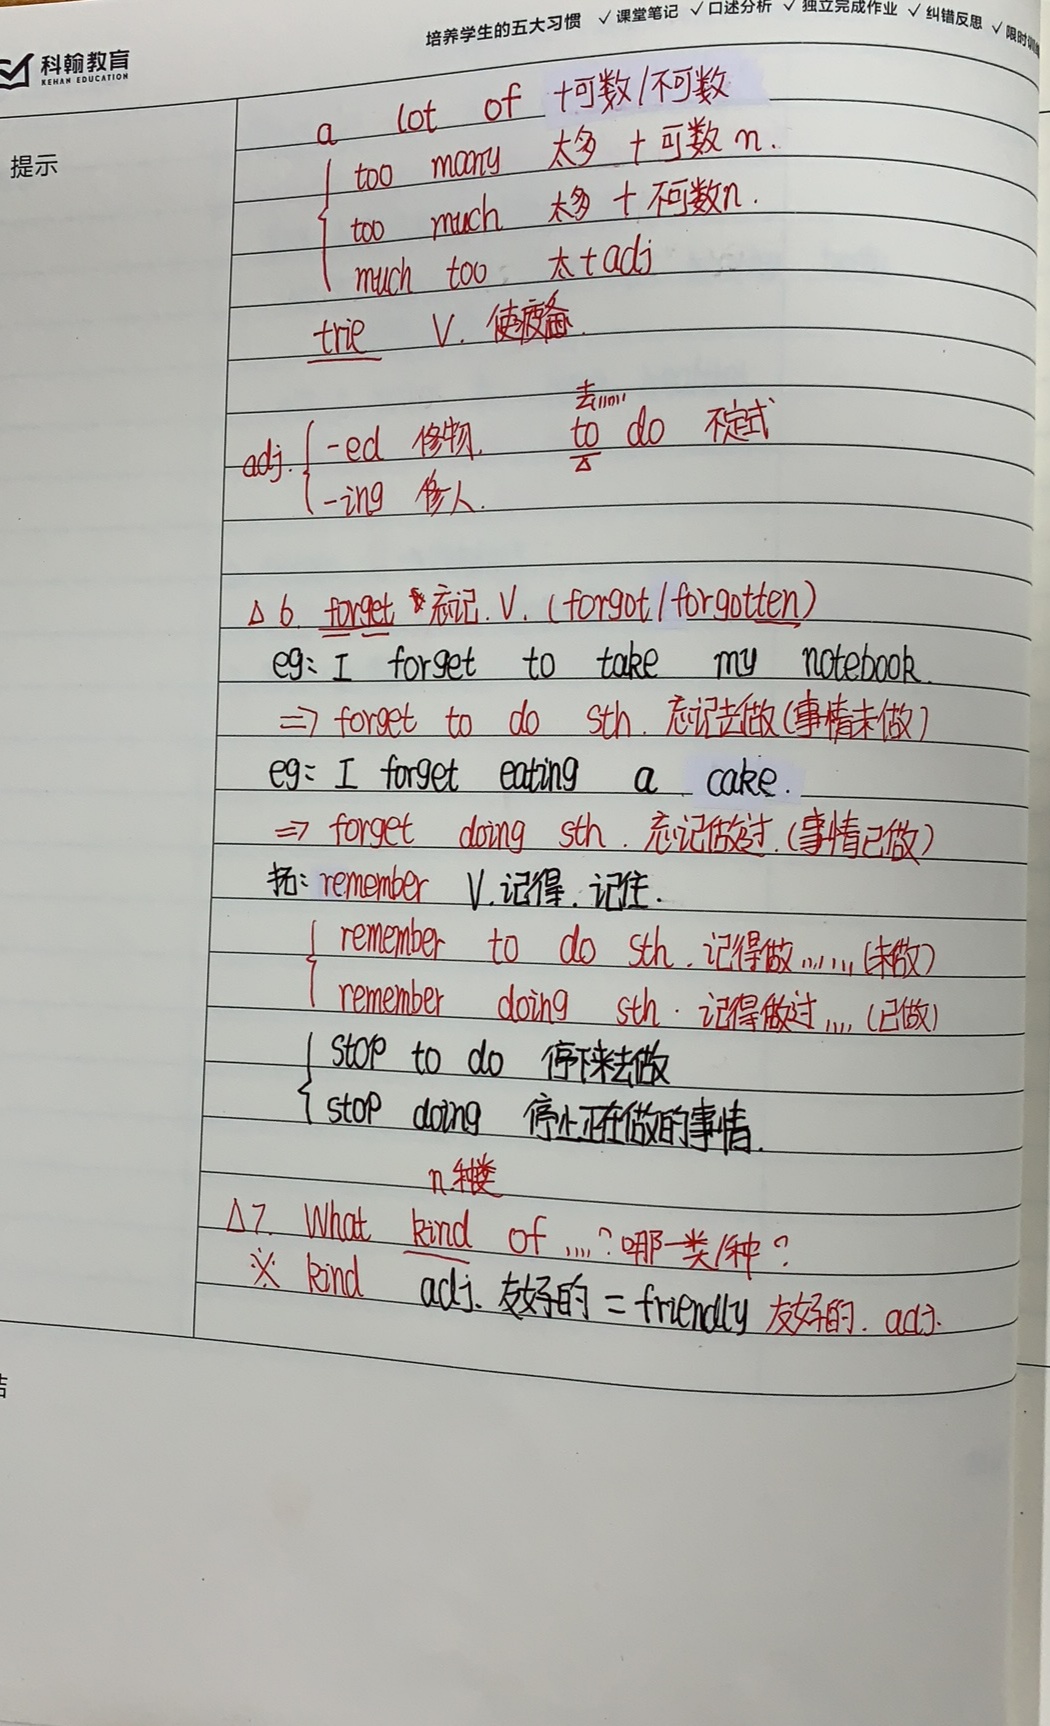 培养学生的五大习惯 ✓课堂笔记 ✓口述分析 ✓独立完成作业 ✓纠错反思 ✓限时训练
科翰教育
KEHAN EDUCATION
提示
a lot of +可数/不可数
too many 太多 + 可数 n.
too much 太多 + 不可数n.
much too 太+adj
trie V. 使疲备.
去......
adj. -ed 修物. to do 不定式
-ing 修人.
△6. forget 忘记. V. (forgot/forgotten)
eg: I forget to take my notebook.
=> forget to do sth. 忘记去做(事情未做)
eg: I forget eating a cake.
=> forget doing sth. 忘记做过.(事情已做)
拓: remember V.记得.记住.
remember to do sth. 记得做......(未做)
remember doing sth. 记得做过....(已做)
stop to do 停下来去做
stop doing 停止正在做的事情.
n.种类
△7. What kind of ....? 哪一类/种?
※ kind adj. 友好的 = friendly 友好的. adj.
结